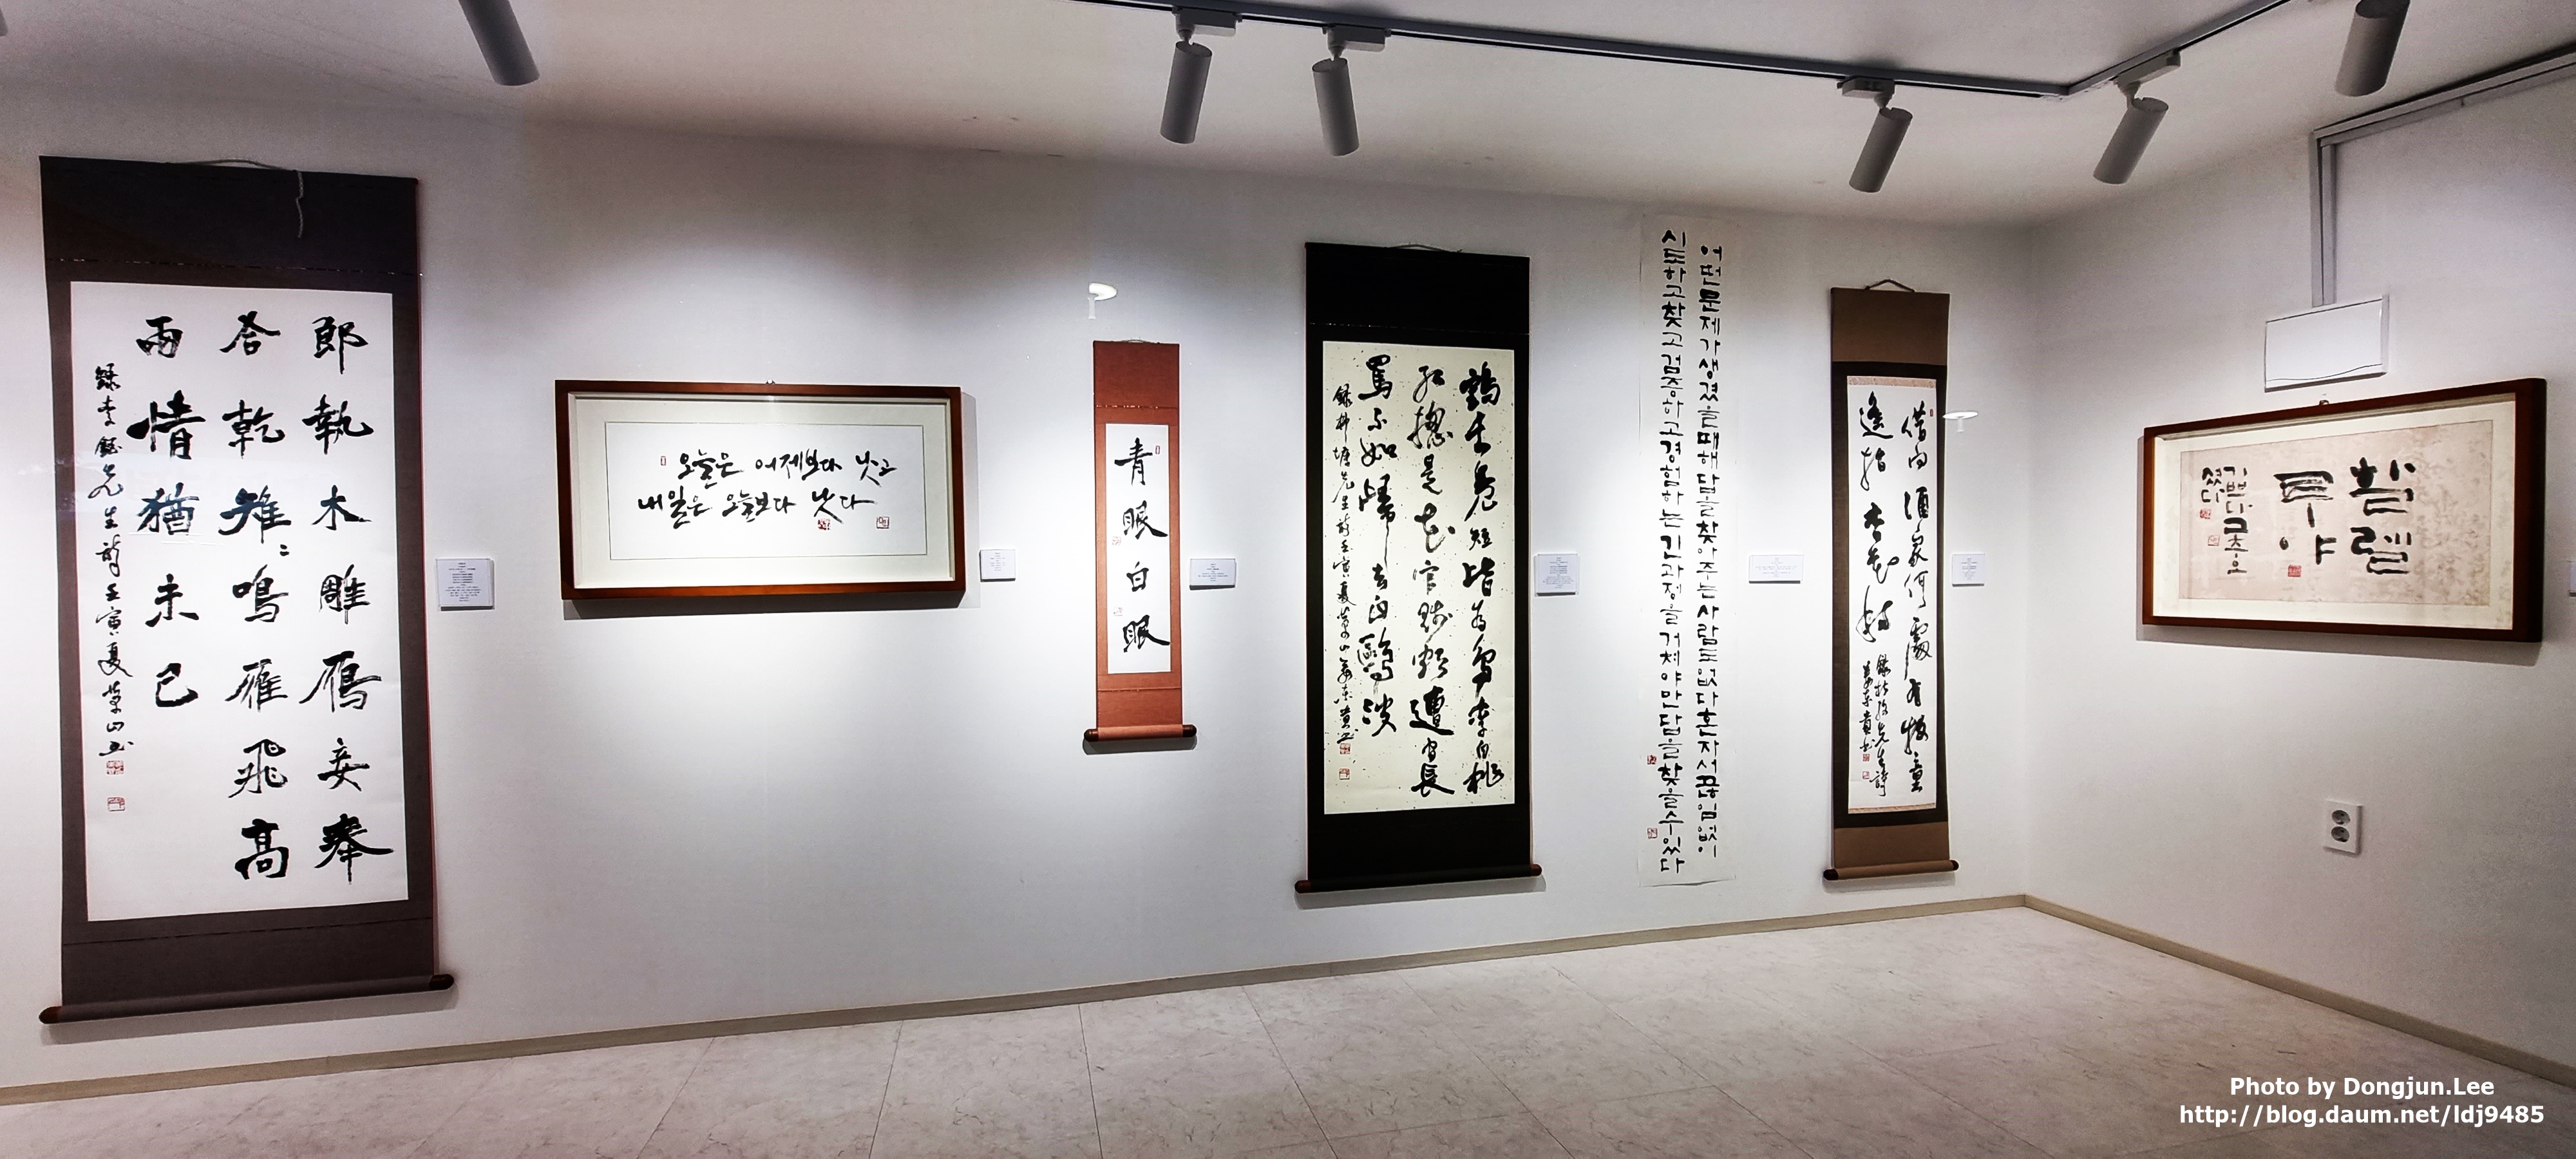 郎執木雕雁妾奉
合乾雉〻鳴雁飛高
兩情猶未已
錄李鈺先生詩壬寅夏草山書
오늘은 어제보다 낫고
내일은 오늘보다 낫다
青眼白眼
鶴長鳧短皆為鳥李白桃
紅摠是花官賤頻遭官長
罵不如歸去白鷗波
어떤문제가생겼을때해답을찾아주는사람도없다혼자서끊임없이
시도하고찾고검증하고경험하는긴과정을거쳐야만답을찾을수있다
借問酒家何處有牧童
遙指杏花村
할렐
루야
기쁘다구주오
셨다
Photo by Dongjun.Lee
http://blog.daum.net/ldj9485